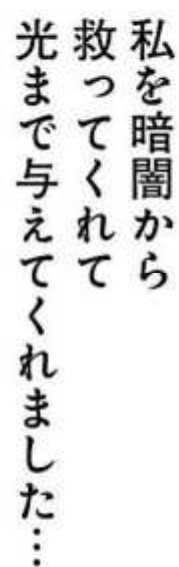 私を暗闇から
救ってくれて
光まで与えてくれました…